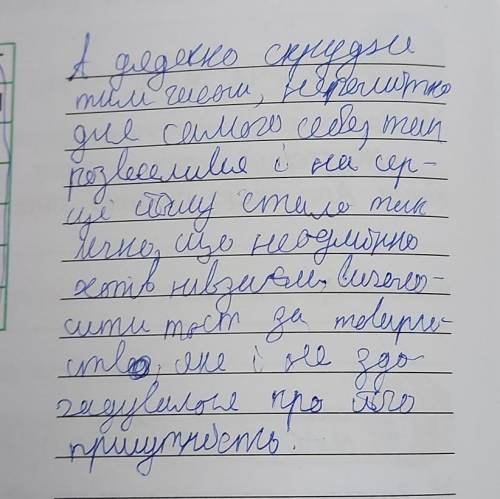 А дядечко скрудж
тим часом, непомітно
для самого себе, так
розвеселився і на сер-
ці йому стало так
легко, що неодмінно
хотів навзаєм виголо-
сити тост за товари-
ство, яке і не здо
гадувалося про його
присутність.